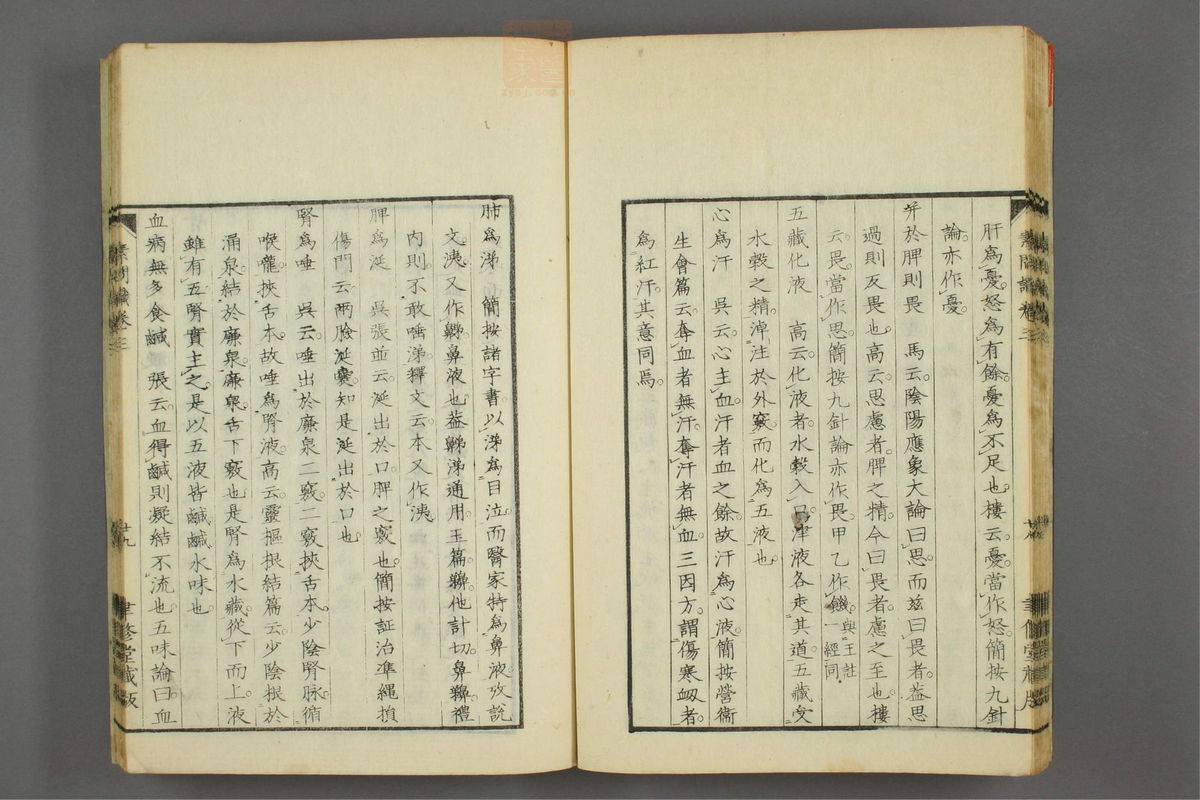 肝爲憂怒爲有餘憂爲不足也樓云憂當作怒簡按九針
論亦作憂
并於脾則畏　馬云陰陽應象大論曰思而玆曰畏者蓋思
過則反畏也高云思慮者脾之精今曰畏者慮之至也樓
云畏當作思簡按九針論亦作畏甲乙作饑一經同與王註
五藏化液　高云化液者水穀入口津液各走其道五藏受
水穀之精淖注於外竅而化爲五液也
心爲汗　吳云心主血汗者血之餘故汗爲心液簡按營衞
生會篇云奪血者無汗奪汗者無血三因方謂傷寒衂者
爲紅汗其意同焉
素問識卷三
肺爲涕　簡按諸字書以涕爲目泣而醫家特爲鼻液攷說
文洟又作鵜鼻液也蓋鵜涕通用玉篇鵜他計切鼻鵜禮
內則不敢唾涕釋文云本又作洟
脾爲涎　吳張並云涎出於口脾之竅也簡按証治準繩損
傷門云兩臉涎竅知是涎出於口也
腎爲唾　吳云唾出於廉泉二竅二竅挾舌本少陰腎脉循
喉嚨挾舌本故唾爲腎液高云靈樞根結篇云少陰根於
涌泉結於廉泉廉泉舌下竅也是腎爲水藏從下而上液
雖有五腎實主之是以五液皆鹹鹹水味也
血病無多食鹹　張云血得鹹則凝結不流也五味論曰血
素問識卷三
廿九
聿修堂藏版